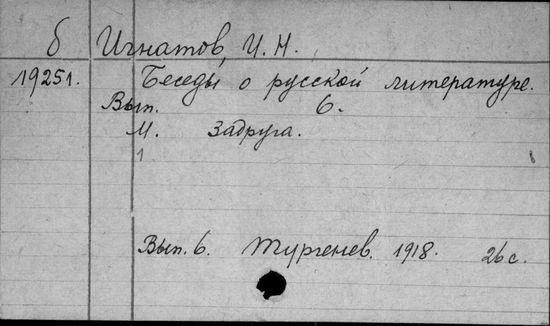 б Игнатов, И. Н.
19251. Беседы о русской литературе.
Вып. 6.
М. Задруга.
1
Вып. 6. Тургенев. 1918. 26 с.